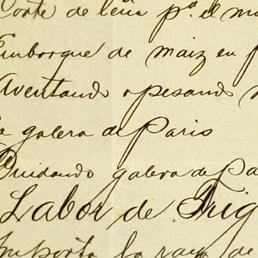 Corte de leña pª. el
Embarque de maiz en
Aventando y pesando
la galera de Paris
Cuidando galera de Pa
Labor de Trig
Importa la raya de